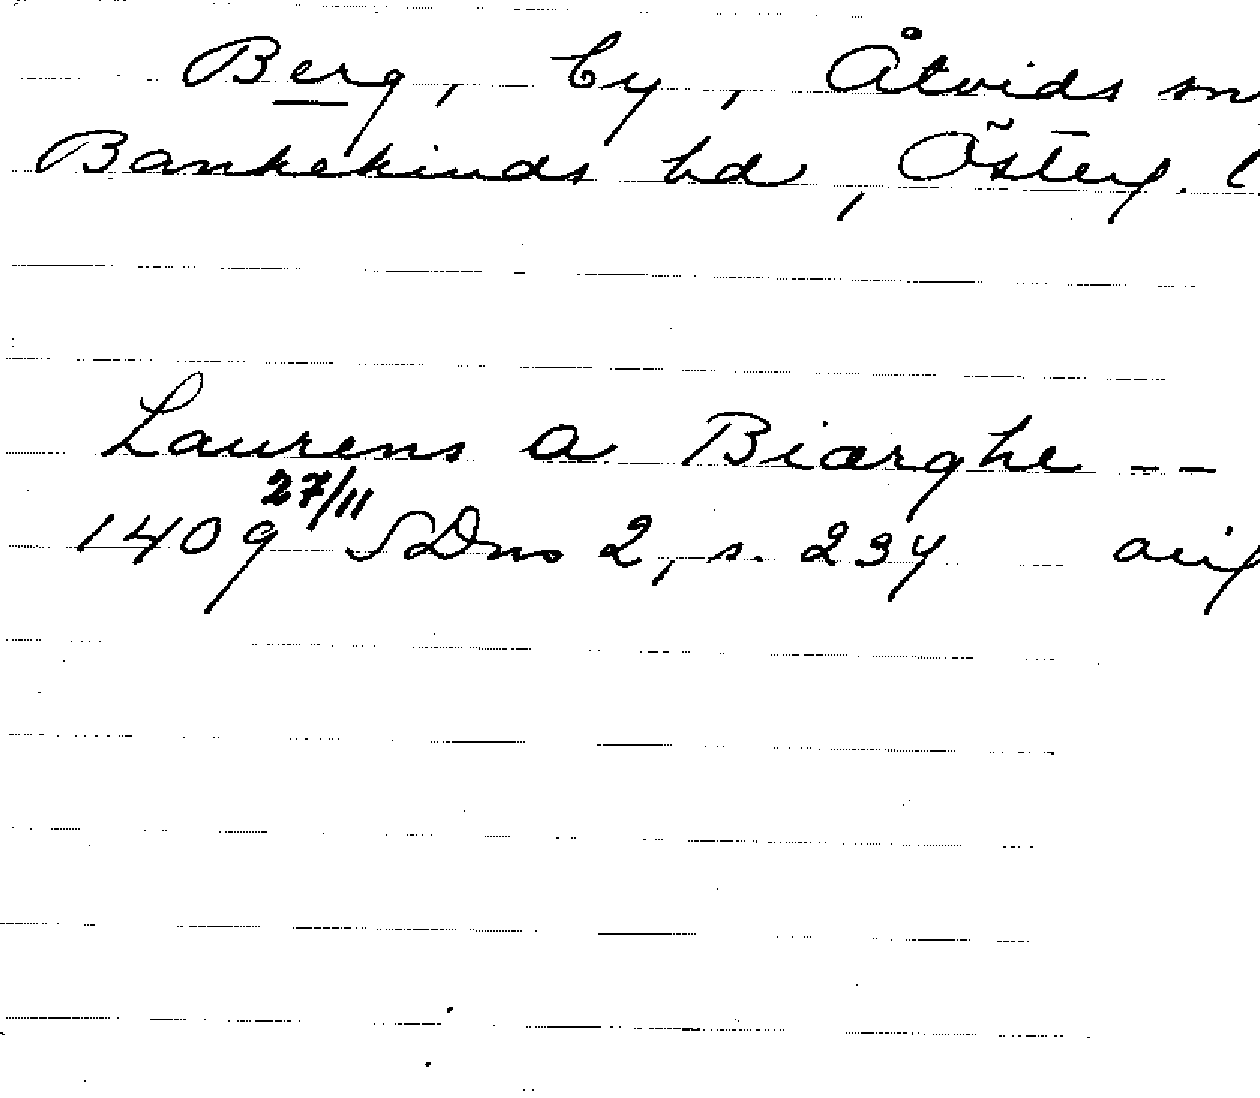 Berg, by, Åtvids sn
Bankekinds hd, Österg.
Laurens a Biærghe --
1409 27/11 SDns 2, s. 234